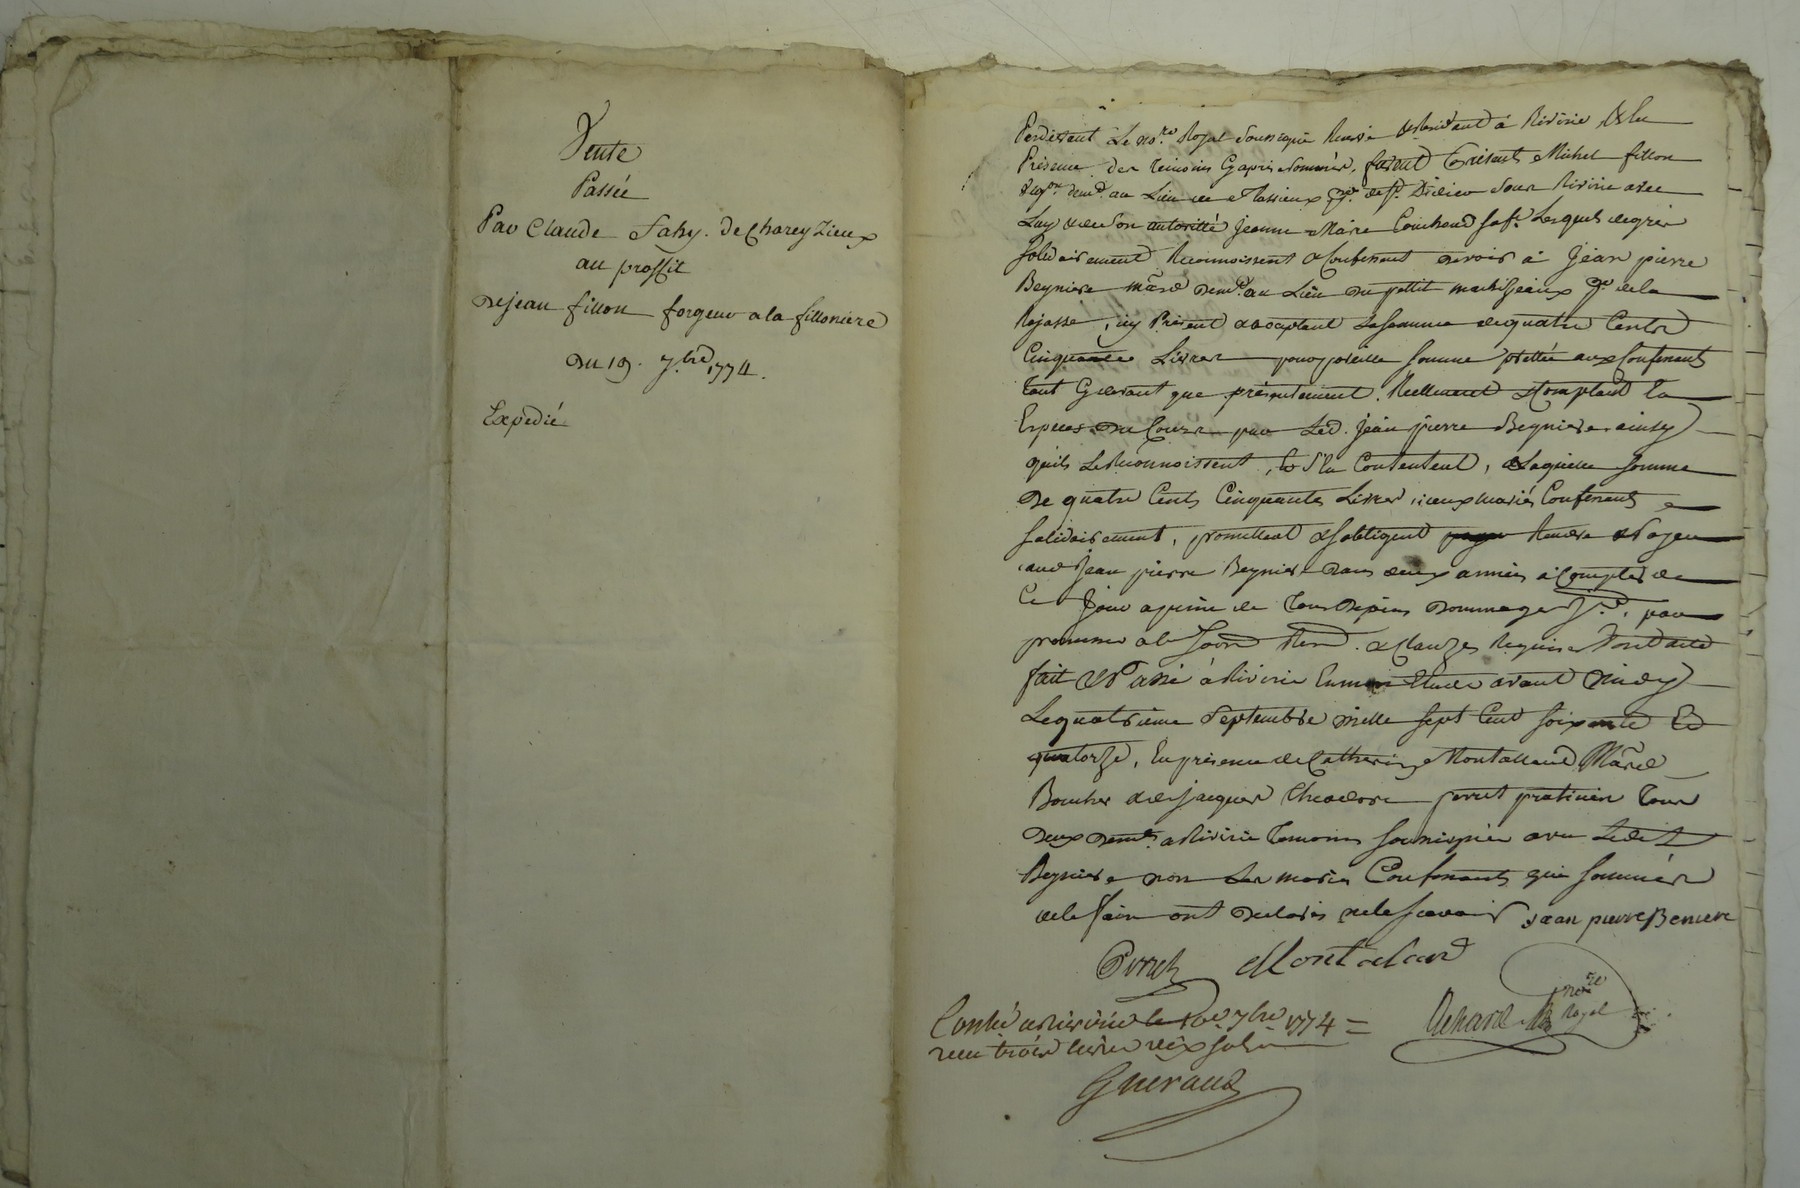 Vente
Passée
Par Claude Fahy. de Chareyzieux
au proffit
De jean fillon forgeur a la filloniere
Du 19. 7.bre 1774.
Expedié
Pardevant Le no.re Royal Soussigné Reservé & residant à Riverie & En
Présence des temoins Cy après nommés, furent présents Michel fillon
demt au Lieu de Plassieux psse de St. Didier sous Riverie avec
Luy & de Son autoritté jeanne Marie Couchoud sa fe. Lesquels de gré
solidairement Reconnoissent & Confessent devoir à jean pierre
Beyniere md demt au Lieu du pettit psse de la
Rajasse, icy Présent & acceptant La somme de quatre Cents
Cinquante Livres pour pareille somme prettée aux Confessants
tant Cy devant que présentement. Reellement & Comptant En
Especes du Cours par Led. jean pierre Beyniere ainsy
qu'ils Le Reconnoissent, & s'En Contentent, & Laquelle somme
De quatre Cents Cinquante Livres iceux mariés Confessants
solidairement, promettent & sobligent Rendre & Payer
aud jean pierre Beyniere dans deux années à Compter de
Ce jour a peine de Tous Dépens Dommages par
promesse & Clauzes Requises Dont acte
fait & Passé à Riverie En mon Etude avant midy
Le quatrieme Septembre mille sept Cent soixante Et
quatorze, En présence de Catherin Montalland Marcd
Boucher & de jacques Theodore perret praticien Tous
Deux demts a Riverie temoins soussignés avec Ledit
Beyniere non Les mariés Confessants qui sommés
de le faire ont Déclarés ne le scavoir jean pierre Beniere
Perret Montaland
nore Royal
Conlé a Riverie le 10e 7bre 1774 =
receu trois livres dix sols
Gueraud